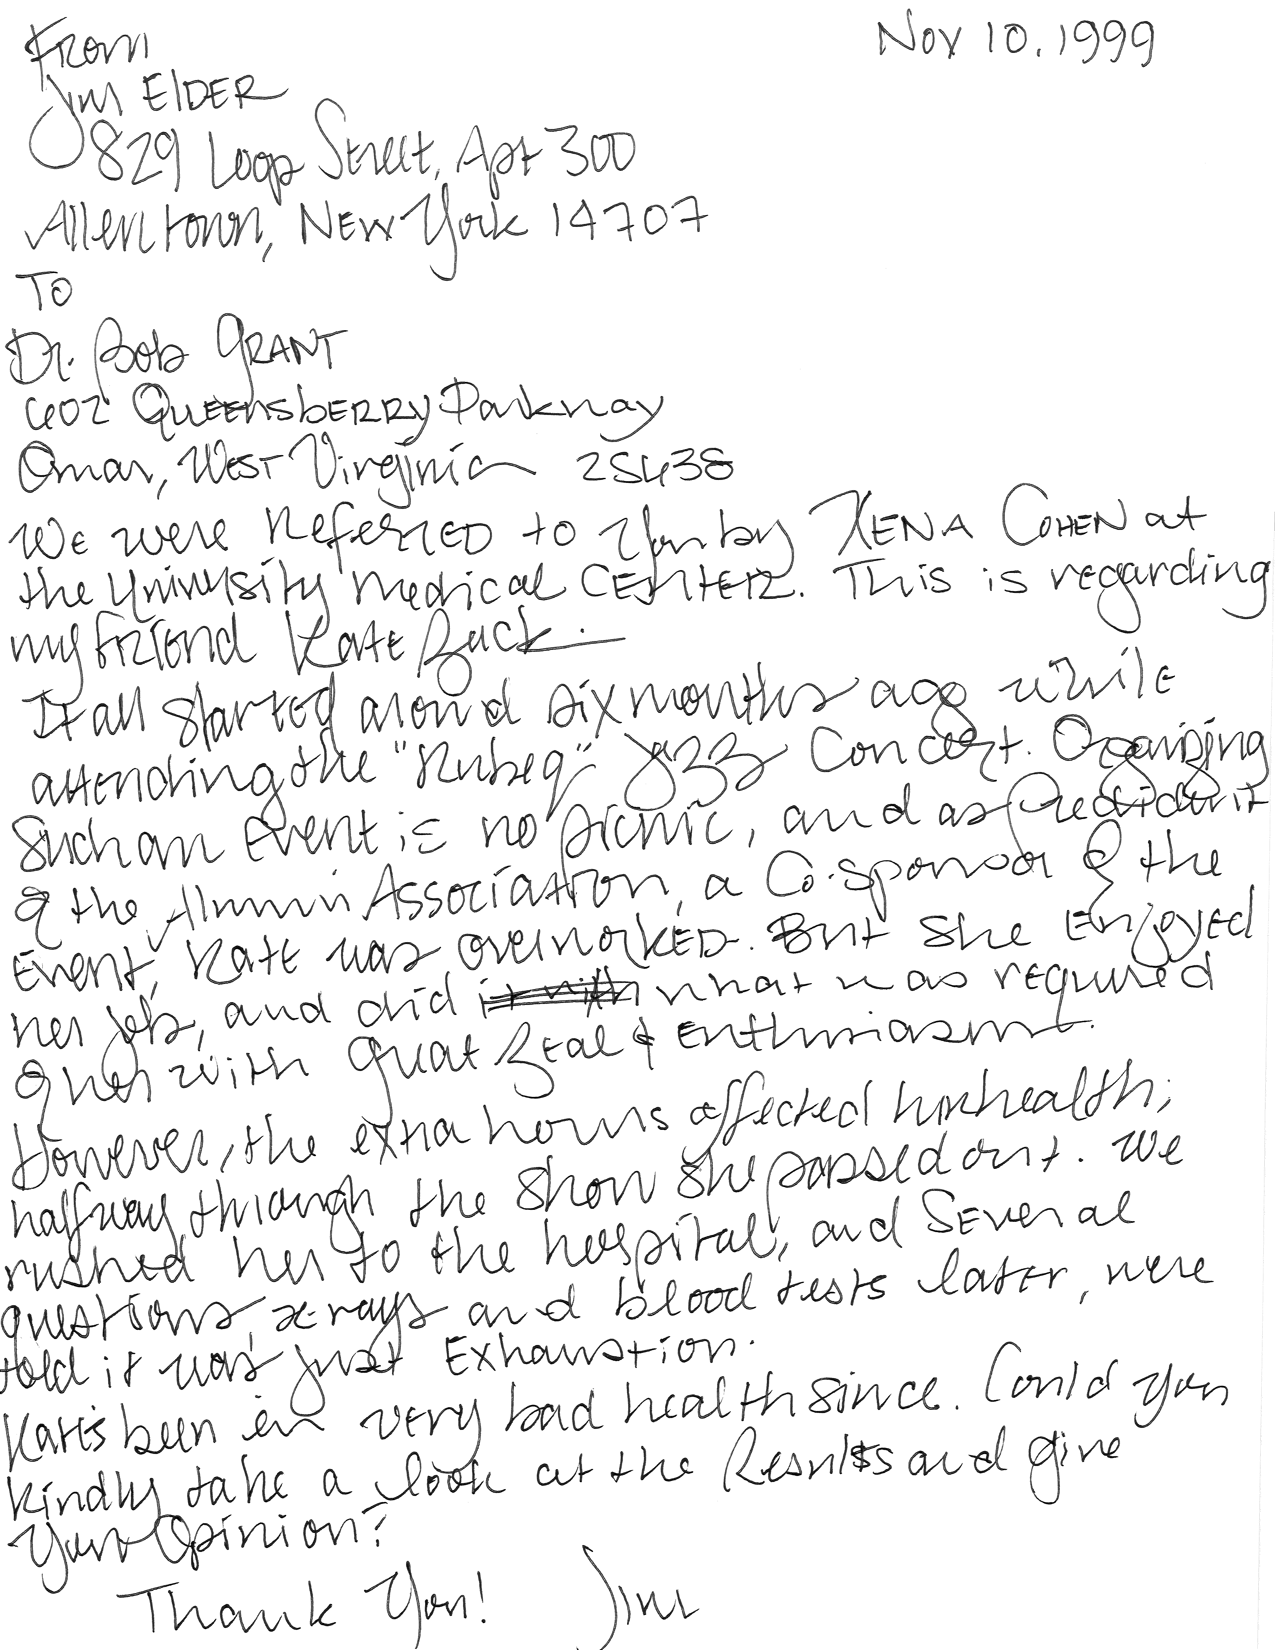 Nov 10, 1999
From
Jim Elder
829 Loop Street, Apt 300
Allentown, New York 14707
To
Dr. Bob Grant
602 Queensberry Parkway
Omar, West Virginia 25638
We were referred to you by Xena Cohen at
the University Medical Center. This is regarding
my friend Kate Zuck.
It all started around six months ago while
attending the "Rubeq" Jazz Concert. Organizing
such an event is no picnic, and as President
of the Alumni Association, a co-sponsor of the
event, Kate was overworked. But she enjoyed
her job, and did what was required
of her with great zeal & enthusiasm.
However, the extra hours affected her health;
halfway through the show she passed out. We
rushed her to the hospital, and several
questions, x-rays and blood tests later, were
told it was just exhaustion.
Kate's been in very bad health since. Could you
kindly take a look at the results and give
your opinion?
Thank you! Jim